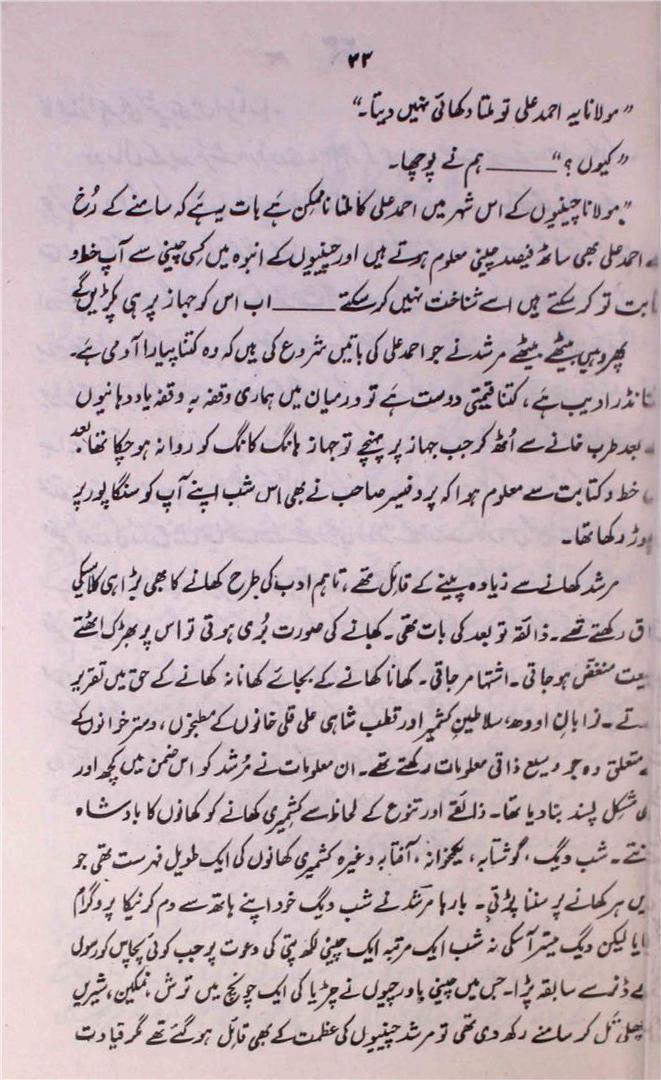 ۲۲
"مولانا یہ احمد علی تو ملتا دکھائی نہیں دیتا۔"
"کیوں؟" ــــــــ ہم نے پوچھا۔
"مولانا چینیوں کے اس شہر میں احمد علی کا ملنا ناممکن ہے بات یہ ہے کہ سامنے کے رُخ
احمد علی بھی ساٹھ فیصد چینی معلوم ہوتے ہیں اور چینیوں کے انبوہ میں کسی چینی سے آپ خط و
تابت تو کر سکتے ہیں اسے شناخت نہیں کر سکتے ــــــــ اب اس کو جہاز پر ہی پکڑیں گے
پھر وہیں بیٹھے بیٹھے مرشد نے جو احمد علی کی باتیں شروع کی ہیں کہ وہ کتنا پیارا آدمی ہے۔
ادیب ہے، کتنا قیمتی دوست ہے تو درمیان میں ہماری وقفہ بہ وقفہ یاد دہانیوں
بعد طرب خانے سے اُٹھ کر جب جہاز پر پہنچے تو جہاز ہانگ کانگ کو روانہ ہو چکا تھا بعد
خط و کتابت سے معلوم ہوا کہ پروفیسر صاحب نے بھی اس شب اپنے آپ کو سنگاپور پر
وڑ رکھا تھا۔
مرشد کھانے سے زیادہ پینے کے قائل تھے، تاہم ادب کی طرح کھانے کا بھی بڑا ہی کلاسیکی
اق رکھتے تھے۔ ذائقہ تو بعد کی بات تھی۔ کھانے کی صورت بُری ہوتی تو اس پر بھڑک اٹھتے
یعت منغض ہو جاتی۔ اشتہا مر جاتی۔ کھانا کھانے کے بجائے کھانا نہ کھانے کے حق میں تقریر
تے۔ نوابانِ اودھ، سلاطینِ کشمیر اور قطب شاہی علی قلی خانوں کے مطبخوں، دسترخوانوں کے
متعلق وہ جو وسیع ذاتی معلومات رکھتے تھے۔ ان معلومات نے مُرشد کو اس ضمن میں کچھ اور
ی مشکل پسند بنا دیا تھا۔ ذائقے اور تنوع کے لحاظ سے کشمیری کھانے کو کھانوں کا بادشاہ
نتے۔ شب دیگ، گوشتابہ، یخوانہ، آفتابہ وغیرہ کشمیری کھانوں کی ایک طویل فہرست تھی جو
یں ہر کھانے پر سننا پڑتی۔ بارہا مرشد نے شب دیگ خود اپنے ہاتھ سے دم کرنیکا پروگرام
ایا لیکن دیگ میسر آسکی نہ شب ایک مرتبہ ایک چینی لکھ پتی کی دعوت پر جب کوئی پچاس کورسوں
ے ڈنر سے سابقہ پڑا۔ جس میں چینی باورچیوں نے چڑیا کی ایک چونچ میں ترش، نمکین، شیریں
چھلی تل کر سامنے رکھ دی تھی تو مرشد چینیوں کی عظمت کے بھی قائل ہو گئے تھے گر قیادت